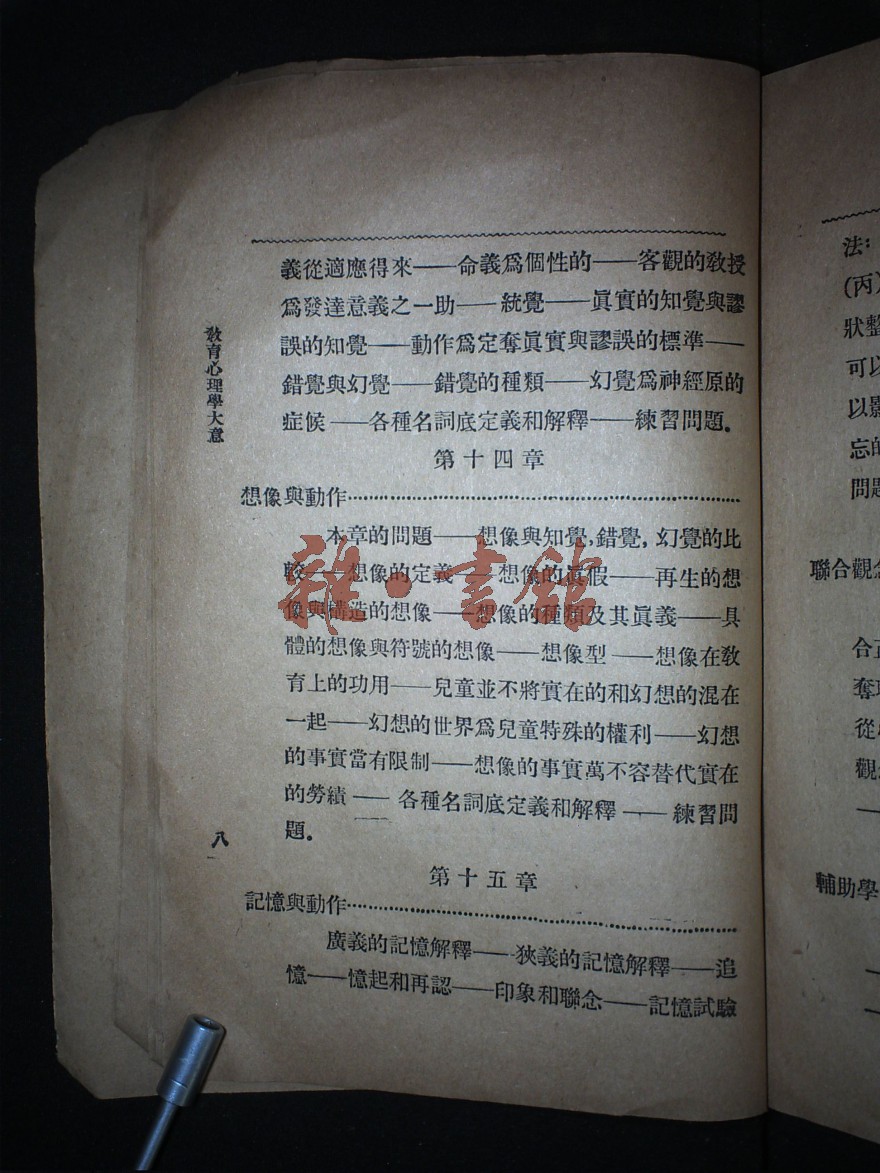 義從適應得來——命義爲個性的——客觀的敎授
爲發達意義之一助——統覺——眞實的知覺與謬
誤的知覺——動作爲定奪眞實與謬誤的標準——
錯覺與幻覺——錯覺的種類——幻覺爲神經原的
症候——各種名詞底定義和解釋——練習問題。
第十四章
想像與動作…………………………………………
本章的問題——想像與知覺,錯覺,幻覺的比
較——想像的定義——想像的眞假——再生的想
像與構造的想像——想像的種類及其眞義——具
體的想像與符號的想像——想像型——想像在敎
育上的功用——兒童並不將實在的和幻想的混在
一起——幻想的世界爲兒童特殊的權利——幻想
的事實當有限制——想像的事實萬不容替代實在
的勞績——各種名詞底定義和解釋——練習問
題。
第十五章
記憶與動作…………………………………………
廣義的記憶解釋——狹義的記憶解釋——追
憶——憶起和再認——印象和聯念——記憶試驗
敎育心理學大意
八
雜·書館
法:
(丙)
狀整
可以
以影
忘的
問題
聯合觀念
合
奪
從
觀
輔助學